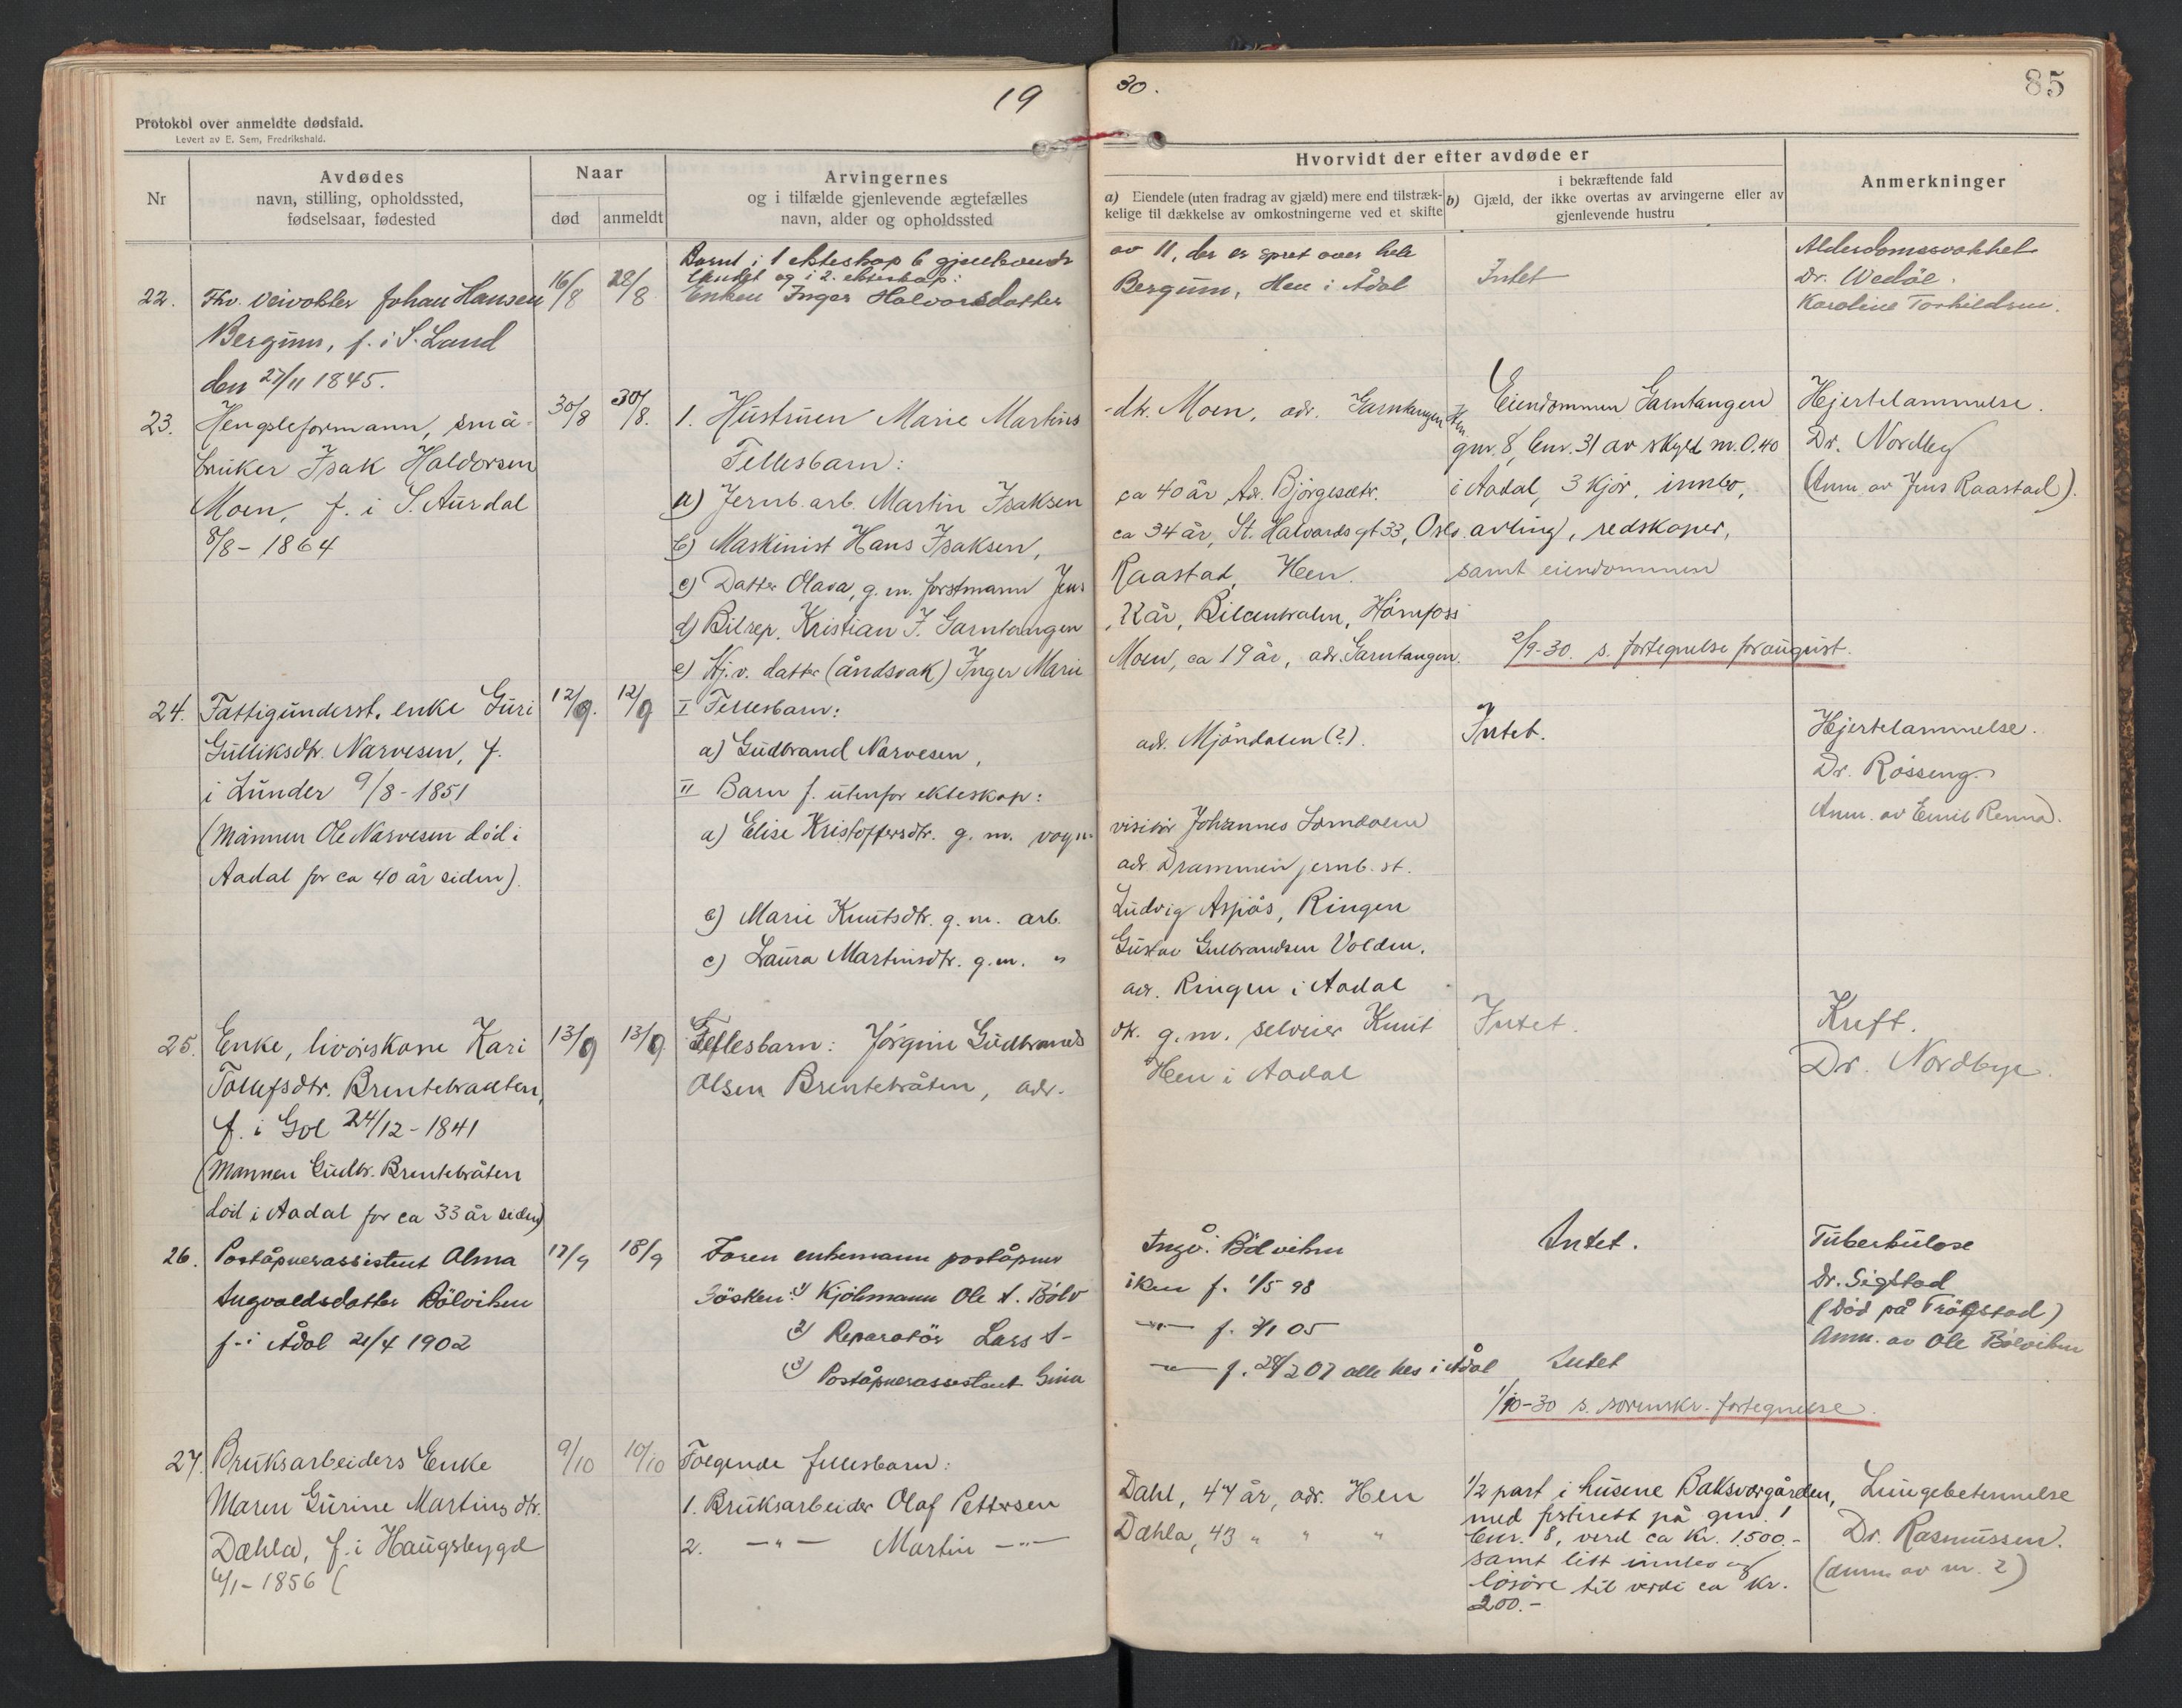 19
30.
85
Protokol over anmeldte dødsfald.
Levert av E. Sem, Fredrikshald.
Nr
Avdødes
navn, stilling, opholdssted,
fødselsaar, fødested
Naar
død
anmeldt
Arvingernes
og i tilfælde gjenlevende ægtefælles
navn, alder og opholdssted
Hvorvidt der efter avdøde er
a) Eiendele (uten fradrag av gjæld) mere end tilstræk-
kelige til dækkelse av omkostningerne ved et skifte
i bekræftende fald
b) Gjæld, der ikke overtas av arvingerne eller av
gjenlevende hustru
Anmerkninger
22. Fhv. veivokter Johan Hansen
Bergum, f. i S. Land
den 27/11 1845.
16/8 28/8
Barnt i 1 ekteskap 6 gjenlevende
og i 2. ekteskap:
Enken Inger Halvorsdatter
av 11, der er spret over hele
Bergum, Hen i Ådal
Intet
Alderdomssvakhet
Dr. Wedøe.
Karoline Torkildsen.
23. Hengsleformann, små-
bruker Isak Haldorsen
Moen, f. i S. Aurdal
8/8 - 1864
30/8 30/8.
1. Hustruen Marie Martins
Fellesbarn:
a) Jernb. arb. Martin Isaksen
b) Maskinist Hans Isaksen,
c) Datter Olava, g. m. forstmann Jens
d) Bilrep. Kristian I. Garntangen
e) Hj. v. datter (åndsvak) Inger Marie
-dtr. Moen, adr. Garntangen Hen
ca 40 år Adr. Bjørgesetr.
ca 34 år, St. Halvards gt 33, Oslo
Raastad, Hen.
år, Bilcentralen, Hönefoss
Moen, ca 19 år, adr. Garntangen.
Eiendommen Garntangen
gnr. 8, bnr. 31 av skyld m. 0.40
i Aadal, 3 kjør, innbo,
avling, redskaper,
samt eiendommen
2/9-30. s. fortegnelse for august.
Hjertelammelse.
Dr. Nordby
(Anm. av Jens Raastad).
24. Fattigunderst. enke Guri
Gulliksdtr. Narvesen, f.
i Lunder 9/8 - 1851
(Mannen Ole Narvesen död i
Aadal for ca 40 år siden).
12/9. 12/9
I Fellesbarn:
a) Gudbrand Narvesen,
II Barn f. utenfor ekteskap:
a) Elise Kristoffersdtr. g. m. vogn-
b) Marie Knutsdtr. g. m. arb.
c) Laura Martinsdtr. g. m. "
adr. Mjöndalen (?).
visitör Johannes
adr. Drammen jernb. st.
Ludvig Aspås, Ringen
Gustav Gulbrandsen Volden.
adr. Ringen i Aadal
Intet.
Hjertelammelse.
Dr. Røsseng.
Anm. av Emil Renna.
25. Enke, livörskone Kari
Tollefsdtr. Brentebraaten,
f. i Gol 24/12 - 1841
(Mannen Gudbr. Brentebråten
död i Aadal for ca 33 år siden)
13/9 13/9
Fellesbarn: Jörgine Gudbrands
Olsen Brentebråten, adr.
dtr. g. m. selveier Knut
Hen i Aadal
Intet.
Kreft.
Dr. Nordbye.
26. Poståpnerassistent Alma
Ingvaldsdatter Bölviken
f. i Ådal 21/4 1902
17/9 18/9
Faren enkemann poståpner
Søsken: 1) Kjöbmann Ole I. Bölv
2) Reparatör Lars I-
3) Poståpnerassistent Gina
Ingv. Bölviken
iken f. 1/5 98
—"— f. 05
—"— f. 28/2 07 alle hes i Ådal
Intet.
Intet
1/10-30 s. sorenskr. fortegnelse.
Tuberkulose
Dr. Sigstad
(död på Trögstad)
Anm. av Ole Bölviken
27. Bruksarbeiders Enke
Maren Gurine Martinsdtr.
Dæhla, f. i Haugsbygd
6/1 - 1856 (
9/10 10/10
Følgende fellesbarn:
1. Bruksarbeider Olaf Pettersen
2. —"— Martin —"—
Dahl, 47 år, adr. Hen
Dæhla, 43 " " "
1/2 part i husene Baksvorgården,
med festerett på gnr. 1
bnr. 8, verd ca Kr. 1500.-
samt litt innbo og
løsøre til verdi ca Kr.
200.-
Lungebetennelse
Dr. Rasmussen.
(anm. av nr. 2)